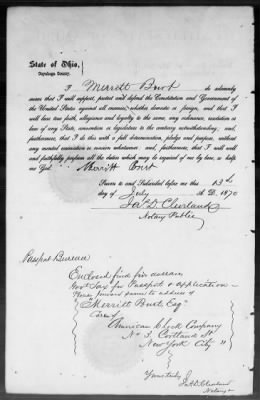 State of Ohio,
Cuyahoga County.
I Merritt Burt do solemnly
swear that I will support, protect and defend the Constitution and Government of
the United States against all enemies, whether domestic or foreign, and that I
will bear true faith, allegiance and loyalty to the same, any ordinance, resolution or
law of any State, convention or legislature to the contrary notwithstanding; and,
furthermore, that I do this with a full determination, pledge and purpose, without
any mental reservation or evasion whatsoever; and, furthermore, that I will well
and faithfully perform all the duties which may be required of me by law, so help
me God. Merritt Burt
Sworn to and Subscribed before me this 13th
day of July A. D. 1870
Jas D. Cleveland
Notary Public
Passport Bureau
Enclosed find five
Gov't Tax for Passport & application
Please forward same to address of
"Merritt Burt Esq
Care of
American Clock Company
No 3. Cortland St
New York City"
Yours truly
Jas D. Cleveland
Notary